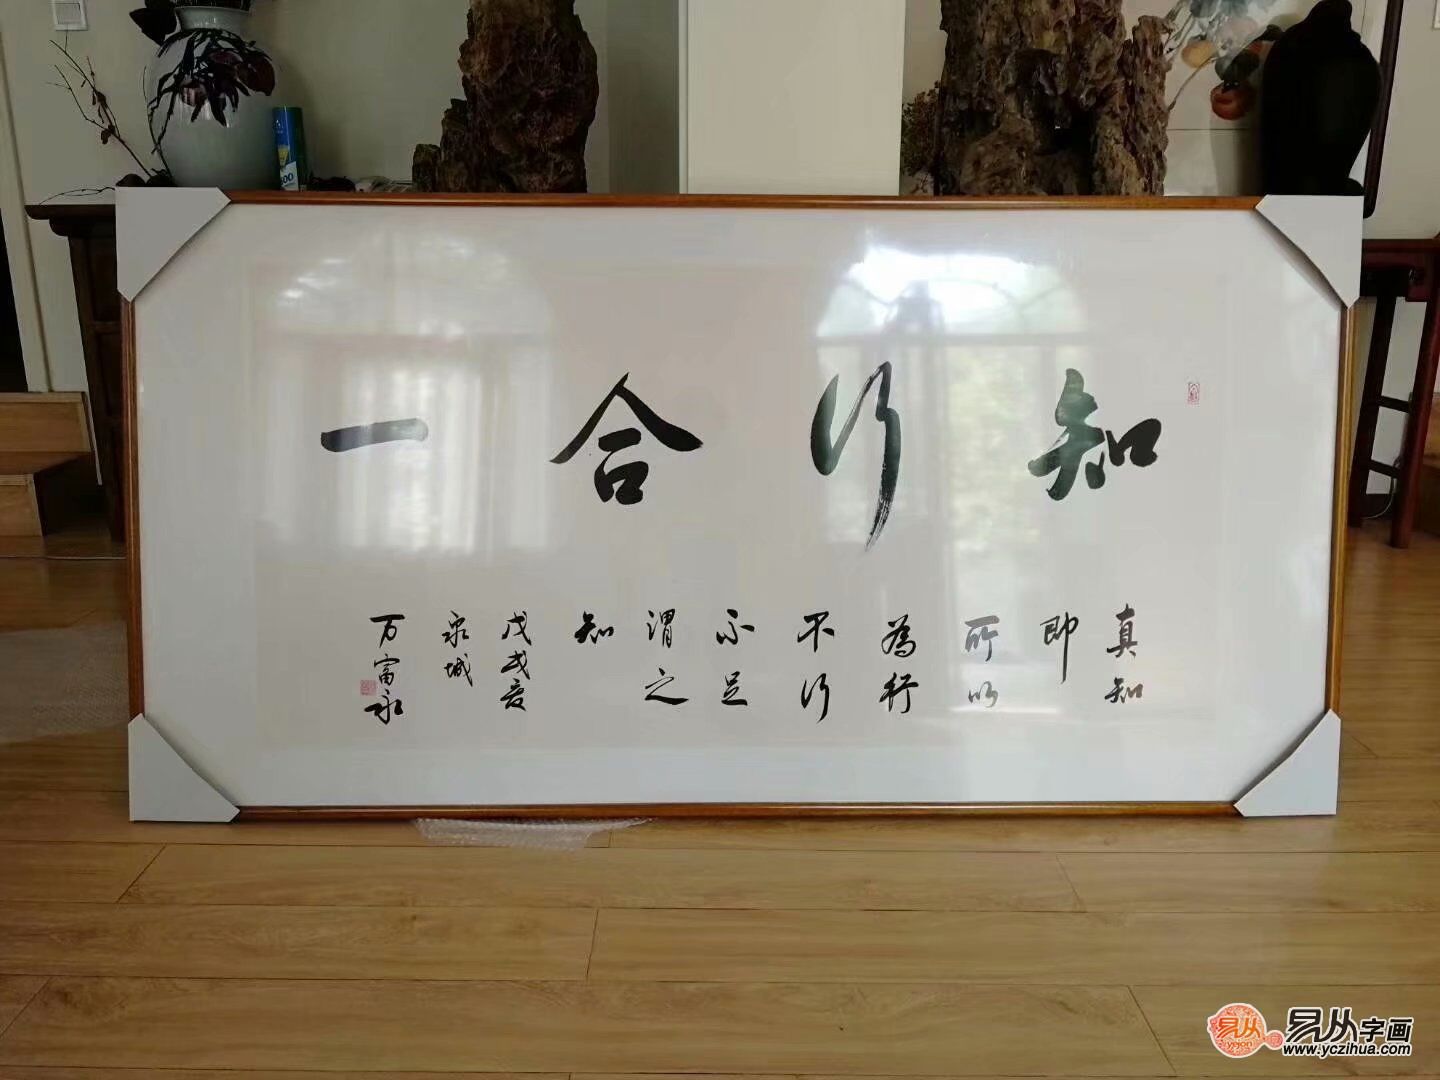 知行合一
真知
即
所以
為行
不行
不足
謂之
知
戊戌夏
泉城
万富永
易从
易从字画
www.yczihua.com